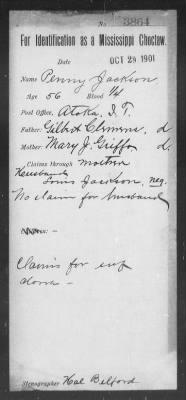 No. 3864
For Identification as a Mississippi Choctaw.
Date OCT 29 1901
Name Penny Jackson
Age 56 Blood 1/4
Post Office, Atoka, I.T.
Father: Gilbert Clemens, d
Mother: Mary J. Griffo d.
Claims through mother
Husband
Louis Jackson, neg.
No claim for husband
Claims for self
alone -
Stenographer Hal Belford